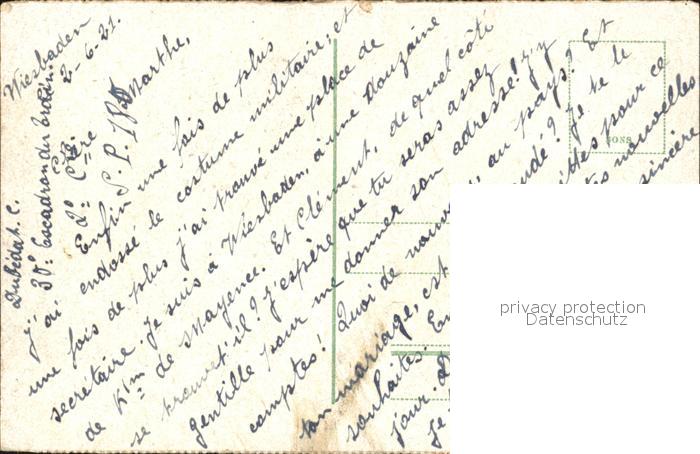 Wiesbaden
2-6-21.
Dubédat. C.
30e Escadron du Train
2e Cie
S. P. 78
Marthe,
Enfin une fois de plus
j'ai endossé le costume militaire; et
une fois de plus j'ai trouvé une place de
secrétaire. Je suis à Wiesbaden, à une douzaine
de Klm de Mayence. Et Clément, de quel côté
se trouve-t-il? J'espère que tu seras assez
gentille pour me donner son adresse!
comptes! Quoi de nouveau, au pays? Et
ton mariage, est
Je te le
souhaite. En
pour ce
jour.
nouvelles
Je
sincère
SONS
privacy protection
Datenschutz